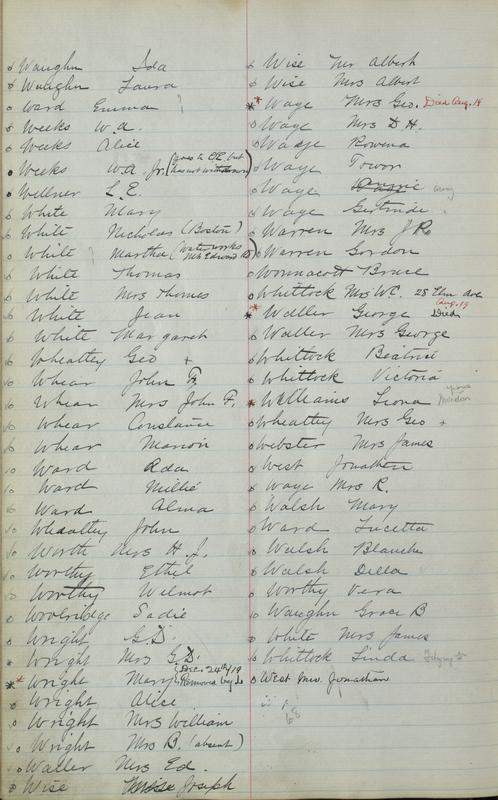 Vaughn Ida
Vaughn Laura
Ward Emma
Weeks W.A.
Weeks Alice
Weeks W.A. Jr. (goes to C.E. but has not withdrawn)
Wellner L.E.
White Mary
White Nicholas (Boston)
White Martha (Waterworks Mrs Edward St)
White Thomas
White Mrs Thomas
White Jean
White Margaret
Wheatley Geo +
Whear John F.
Whear Mrs John F.
Whear Constance
Whear Marion
Ward Ada
Ward Millie
Ward Alma
Wheatley John
Worth Mrs H.J.
Worthy Ethel
Worthy Wilmot
Woolridge Sadie
Wright G.D.
Wright Mrs G.D.
Wright Mary Dec. 24th/19 Removed by
Wright Alice
Wright Mrs William
Wright Mrs B. (absent)
Waller Mrs Ed.
Wise Joseph
Wise Mr Albert
Wise Mrs Albert
Waye Mrs Geo. Died Aug. 19
Waye Mrs D.H.
Waye Rowena
Waye
Waye
Waye Gertrude
Warren Mrs J R
Warren Gordon
Wonnacott Bruce
Whittock Mrs W.C. 25 Elm Ave
Waller George Died Aug. 19
Waller Mrs George
Whittock Beatrice
Whittock Victoria
Williams Leona
Wheatley Mrs Geo +
Webster Mrs James
West Jonathan
Waye Mrs R.
Walsh Mary
Ward Lucetta
Walsh Blanche
Walsh Della
Worthy Vera
Vaughn Grace B
White Mrs James
Whittock Linda
West Mrs. Jonathan